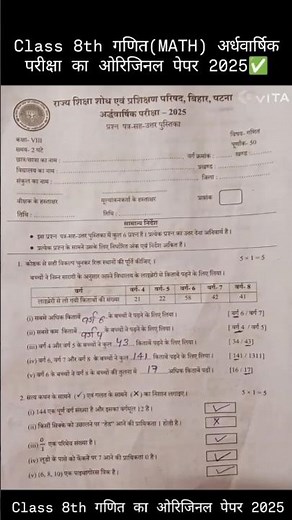 Class 8th गणित(MATH) अर्धवार्षिक
परीक्षा का ओरिजिनल पेपर 2025✅
VITA
राज्य शिक्षा शोध एवं प्रशिक्षण परिषद, बिहार, पटना
अर्द्धवार्षिक परीक्षा – 2025
प्रश्न पत्र-सह-उत्तर पुस्तिका
कक्षा- VIII
विषय- गणित
समय- 2 घंटे
पूर्णांक- 50
छात्र/छात्रा का नाम :
वर्ग क्रमांक : खण्ड :
विद्यालय का नाम :
प्रखण्ड :
संकुल का नाम :
जिला :
वीक्षक के हस्ताक्षर
मूल्यांकनकर्ता के हस्ताक्षर
प्राप्तांक
तिथि :
तिथि :
सामान्य निर्देश
• इस प्रश्न पत्र-सह-उत्तर पुस्तिका में कुल 6 प्रश्न हैं। प्रत्येक प्रश्न का उत्तर देना अनिवार्य है।
• प्रत्येक प्रश्न के सामने उसके लिए निर्धारित अंक अंकित है।
1. कोष्ठक से सही विकल्प चुनकर रिक्त स्थानों की पूर्ति कीजिए : 5×1=5
बच्चों ने निम्न सारणी के अनुसार अपने विद्यालय के लाइब्रेरी से किताबें पढ़ने के लिए लिया।
वर्ग वर्ग- 4 वर्ग- 5 वर्ग- 6 वर्ग- 7 वर्ग- 8
लाइब्रेरी से ली गयी किताबों की संख्या 21 22 58 42 41
(i) सबसे अधिक किताबें वर्ग 6 के बच्चों ने पढ़ने के लिए लिया। [वर्ग 6 / वर्ग 7]
(ii) सबसे कम किताबें वर्ग 4 के बच्चों ने पढ़ने के लिए लिया। [वर्ग 4 / वर्ग 5]
(iii) वर्ग 4 और वर्ग 5 के बच्चों ने कुल 43 किताबें पढ़ने के लिए लिया। [34 / 43]
(iv) वर्ग 6, वर्ग 7 और वर्ग 8 के बच्चों ने कुल 141 किताबें पढ़ने के लिए लिया। [141 / 131]
(v) वर्ग 6 के बच्चों ने वर्ग 8 के बच्चों की तुलना में 17 अधिक किताबें पढ़ीं। [16 / 17]
2. सत्य कथन के सामने (✓) एवं गलत के सामने (✗) का निशान लगाइए। 5×1=5
(i) 144 एक पूर्ण वर्ग संख्या है और इसका वर्गमूल 12 है। ✓
(ii) किसी सिक्के को उछालने पर "हेड" आने की प्रायिकता 1 होती है। ✗
(iii) एक परिमेय संख्या है। ✓
(iv) लूडो के पासे को फेंकने पर 7 आने की प्रायिकता 0 है। ✓
(v) (6, 8, 10) एक पाइथागोरस त्रिक है। ✓
Class 8th गणित का ओरिजिनल पेपर 2025